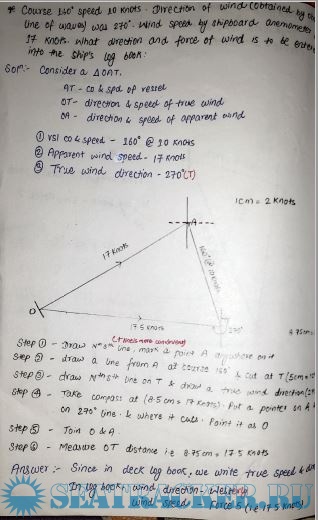 * Course 160° speed 10 knots. Direction of wind (obtained by the
line of waves) was 270°. Wind speed by shipboard anemometer
17 knots. What direction and force of wind is to be entered
into the ship's log book:
Solⁿ:- Consider a ΔOAT.
AT - co & spd of vessel
OT - direction & speed of true wind
OA - direction & speed of apparent wind
① vsl co & speed - 160° @ 10 knots
② Apparent wind speed - 17 knots
③ True wind direction - 270°(T)
1cm = 2 knots
A
17 knots
160° @ 10 knots
O
17.5 knots
270°
8.75cm =
(+ line is more convenient)
Step ① - Draw Nth Sth line, mark a point A anywhere on it
Step ② - draw a line from A at course 160° & cut at T (5cm =
Step ③ - draw Nth Sth line on T & draw a true wind direction
Step ④ - Take compass at (8.5cm = 17 knots). Put a pointer on A
on 270° line & where it cuts. Point it as O
Step ⑤ - Join O & A.
Step ⑥ - Measure OT distance i.e 8.75cm = 17.5 knots
Answer:- Since in deck log book, we write true speed &
In log book, wind direction:- Westerly
wind speed - Force 5 (i.e 17.5 knots)
SEATRACKER.RU